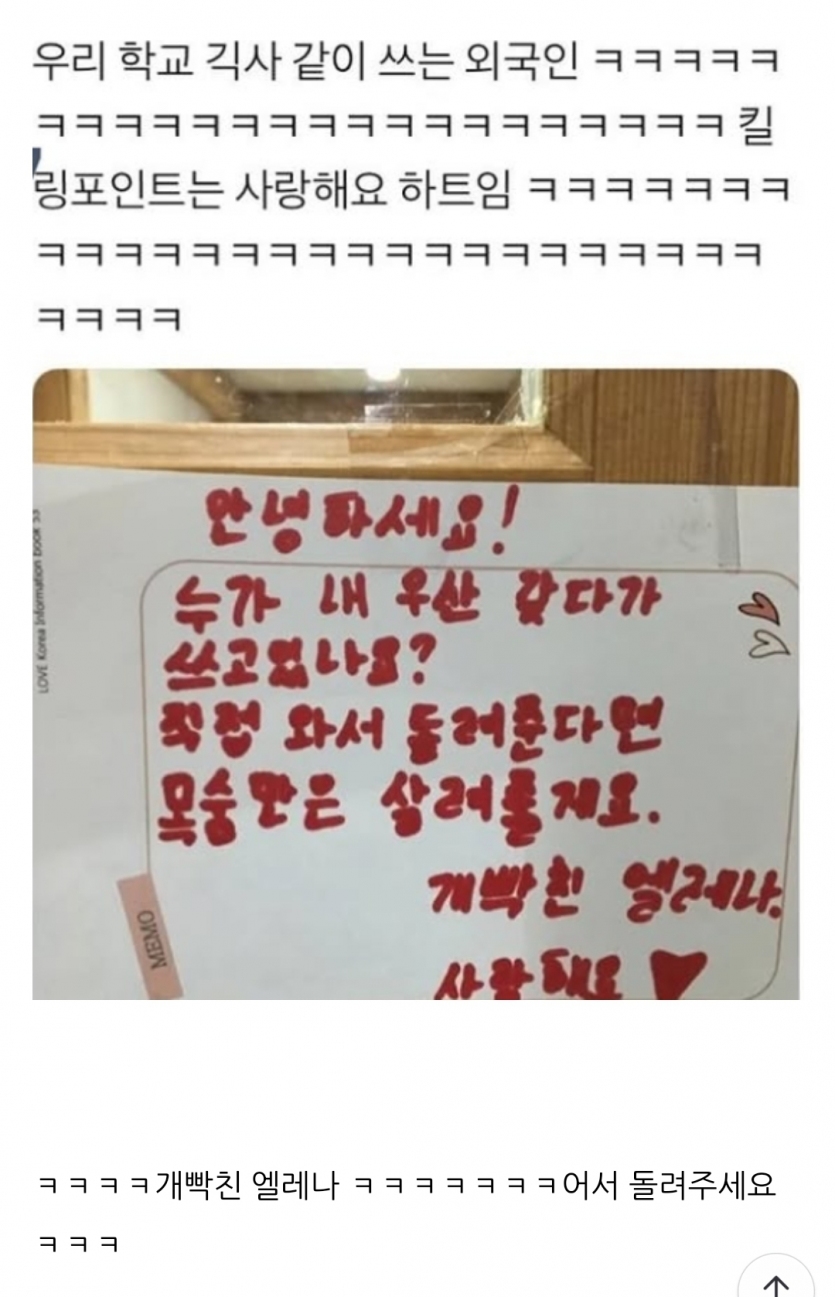 우리 학교 긱사 같이 쓰는 외국인 ㅋㅋㅋㅋㅋ
ㅋㅋㅋㅋㅋㅋㅋㅋㅋㅋㅋㅋㅋㅋㅋㅋㅋㅋ 킬
링포인트는 사랑해요 하트임 ㅋㅋㅋㅋㅋㅋㅋ
ㅋㅋㅋㅋㅋㅋㅋㅋㅋㅋㅋㅋㅋㅋㅋㅋㅋㅋㅋ
ㅋㅋㅋㅋ
LOVE Korea Information book 53
안녕하세요!
누가 내 우산 갖다가
쓰고있나요?
직접 와서 돌려준다면
목숨만은 살려줄게요.
개빡친 엘레나.
사랑해요 ♥
MEMO
ㅋㅋㅋㅋ개빡친 엘레나 ㅋㅋㅋㅋㅋㅋㅋ어서 돌려주세요
ㅋㅋㅋ